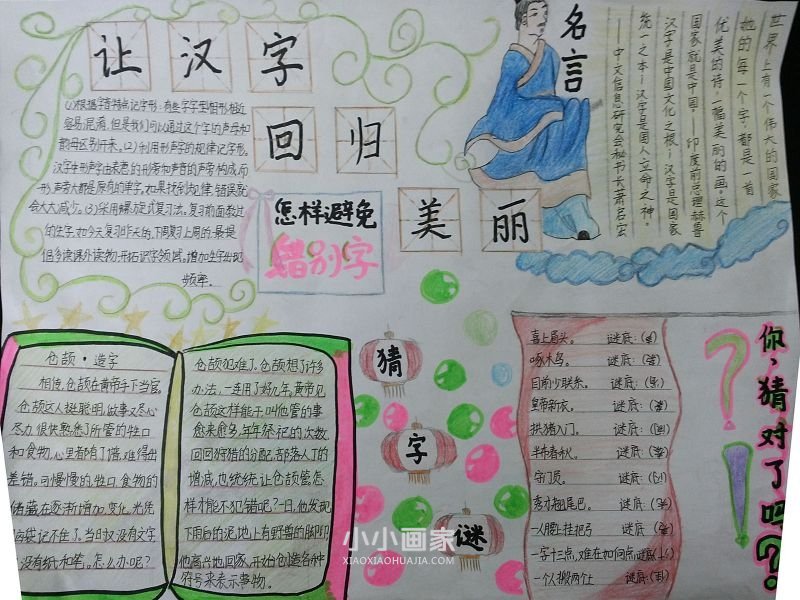 让汉字
回归
美丽
(1)根据字音特点记字形：有些字字型相形相近
容易混淆，但是我们可以通过这个字的声母和
韵母区别开来。(2)利用形声字的规律记字形。
汉字中形声字由表意的形旁和声音的声旁构成，而
形声旁大都是原有的单字，如果找到规律，错误就
会大大减少。(3)采用螺旋式复习法，复习前面教过
的生字，如今天复习昨天的，下周复习上周的，最后
倡多读课外读物，开拓识字领域，增加生字出现
频率。
怎样避免
错别字
名言
世界上有一个伟大的国家
她的每一个字，都是一首
优美的诗，一幅美丽的画，这个
国家就是中国。——印度前总理赫鲁
汉字是中国文化之根；汉字是国家
统一之本；汉字是国人立命之神。
——中文信息研究会秘书长萧启宏
仓颉·造字
相传，仓颉在黄帝手下当官。
仓颉这人挺聪明，做事又尽心
尽力，很快熟悉了所管的牲口
和食物，心里都有了谱，难得出
差错。可慢慢的，牲口、食物的
储藏在逐渐增加、变化，光凭
脑袋记不住了。当时又没有文字
没有纸和笔，怎么办呢？
仓颉犯难了。仓颉想了许多
办法，一连用了好几年。黄帝见
仓颉这样能干，叫他管的事
愈来愈多，年年祭祀的次数，
回回狩猎的分配，部落人丁的
增减，也统统让仓颉管，怎
样才能不犯错呢？一日，他发现
下雨后的泥地上有野兽的脚印
他高兴地回家，开始创造各种
符号来表示事物。
猜
字
谜
喜上眉头。 谜底：(声)
啄木鸟。 谜底：
日南少联系。 谜底：
皇帝新衣。 谜底：
拱猪入门。 谜底：
半布春秋。 谜底：
守门员。 谜底：
秀才翘尾巴。 谜底：
一人腰上挂把弓 谜底：
一字十三点，难在如何点 谜底：
一个人搬两个土 谜底：
你，猜对了吗？
小小画家
XIAOXIAOHUAJIA.COM